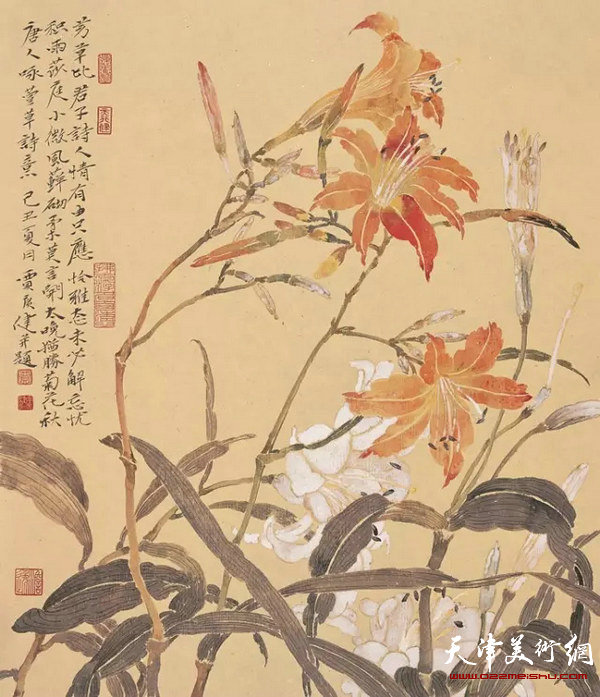 芳草比君子詩人情有由只應怜雅态未必解忘忧
积雨莎庭小微風蘚砌柔莫言開太晚猶勝菊花秋
唐人咏萱草詩意 己丑夏月 賈廣健并題
天津美術網
www.022meishu.com